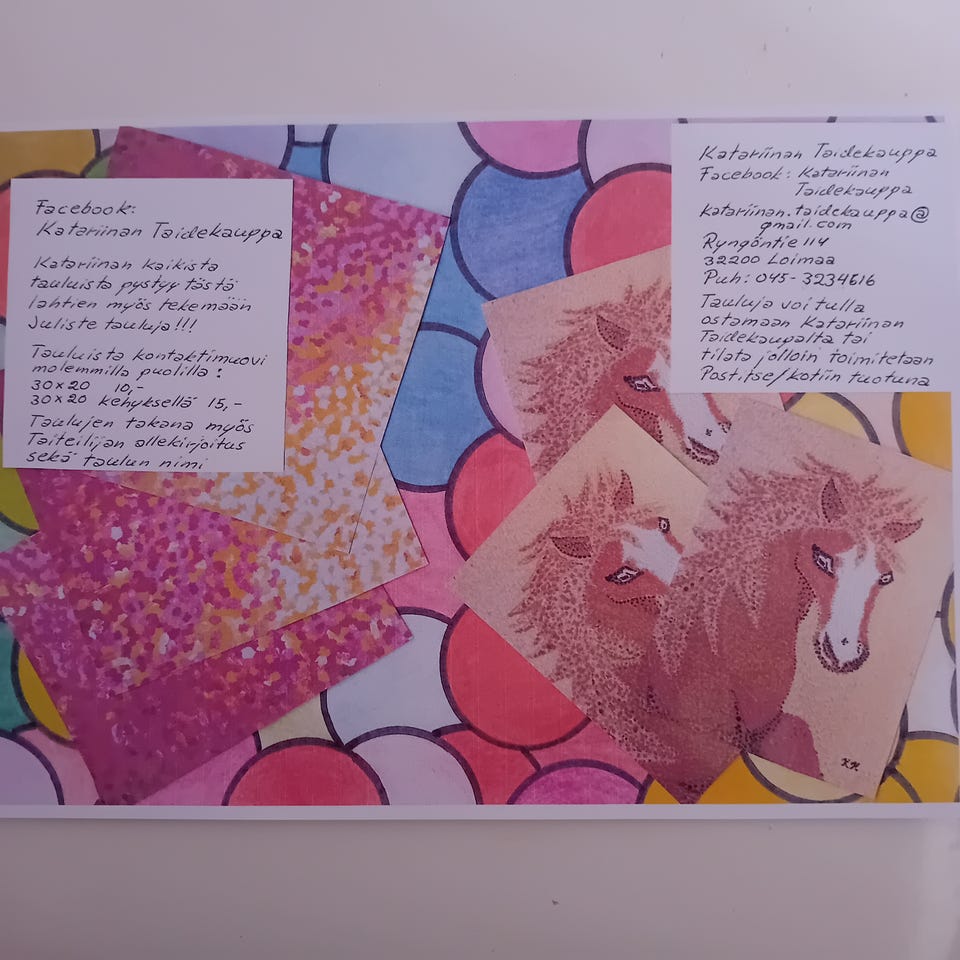 Facebook:
Katariinan Taidekauppa
Katariinan kaikista
tauluista pystyy tästä
lähtien myös tekemään
Juliste tauluja!!!
Tauluista kontaktimuovi
molemmilla puolilla:
30x20 10,-
30x20 kehyksellä 15,-
Taulujen takana myös
Taiteilijan allekirjoitus
sekä taulun nimi
Katariinan Taidekauppa
Facebook: Katariinan
Taidekauppa
katariinan.taidekauppa@
gmail.com
Ryngöntie 114
32200 Loimaa
Puh: 045-3234616
Tauluja voi tulla
ostamaan Katariinan
Taidekaupalta tai
tilata jolloin toimitetaan
Postitse/kotiin tuotuna
KK